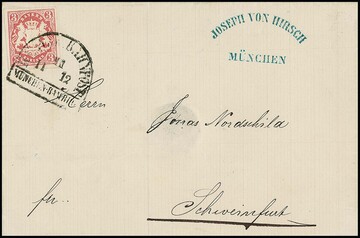 JOSEPH VON HIRSCH
MÜNCHEN
3 3
BAHNPOST
12
MÜNCHEN-BAMBG
Herrn
Jonas Nordschild
fr..
Schweinfurt